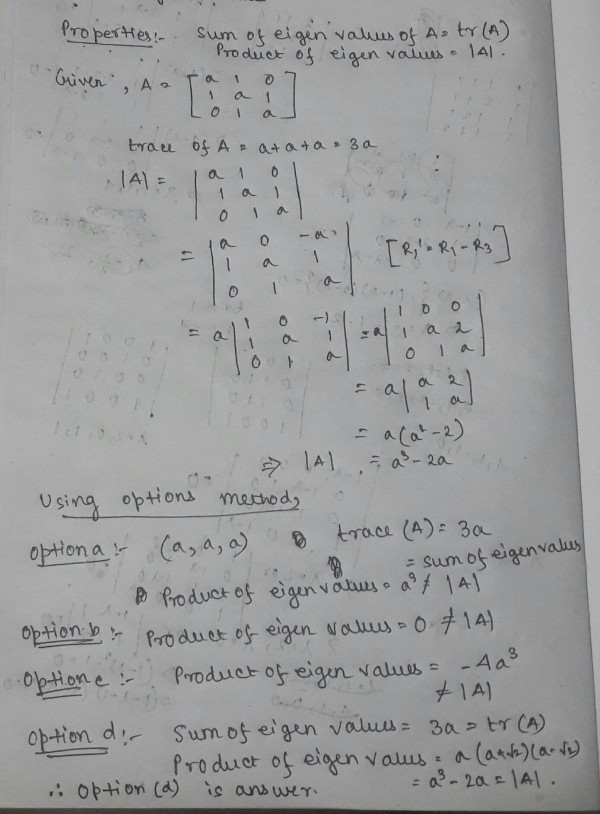 Properties:- Sum of eigen values of A = tr(A)
Product of eigen values = |A|.
Given, A = [a 1 0
1 a 1
0 1 a]
trace of A = a+a+a = 3a
|A| = |a 1 0
1 a 1
0 1 a|
= |a 0 -a
1 a 1
0 1 a| [R1' = R1 - R3]
= a|1 0 -1
1 a 1
0 1 a| = a|1 0 0
1 a 2
0 1 a|
= a|a 2
1 a|
= a(a²-2)
⇒ |A| = a³-2a
Using options method,
Option a :- (a, a, a) trace (A) = 3a
= sum of eigenvalues
Product of eigen values = a³ ≠ |A|
Option b :- Product of eigen values = 0 ≠ |A|
Option c :- Product of eigen values = -4a³
≠ |A|
Option d :- Sum of eigen values = 3a = tr(A)
Product of eigen values = a(a+√2)(a-√2)
= a³-2a = |A|.
∴ Option (d) is answer.